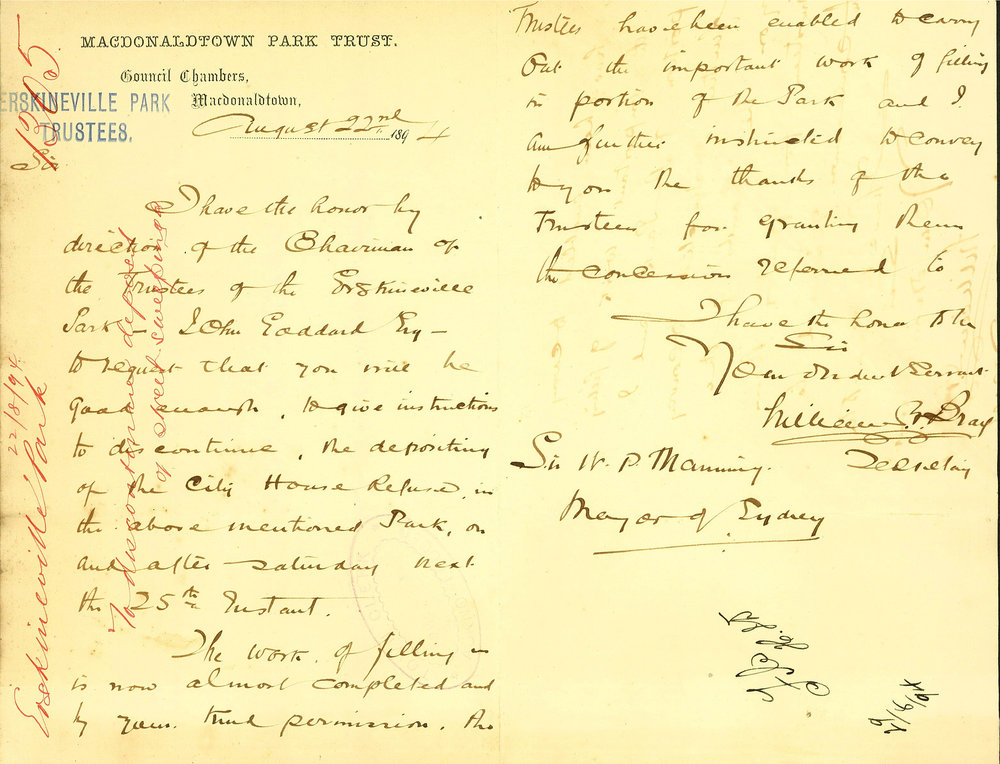 MACDONALDTOWN PARK TRUST.
Council Chambers,
Macdonaldtown,
ERSKINEVILLE PARK
TRUSTEES.
August 22nd 1894
Sir
I have the honor by
direction of the Chairman of
the Trustees of the Erskineville
Park – John Goddard Esq –
to request that you will be
good enough, to give instructions
to discontinue, the depositing
of the City House Refuse, in
the above mentioned Park, on
and after Saturday next
the 25th Instant.
The work of filling in
is now almost completed and
by your kind permission, the
Trustees have been enabled to carry
out the important work of filling
in portion of the Park and I
am further instructed to convey
to you the thanks of the
Trustees for granting them
the concession referred to
I have the honor to be
Sir
Your Obedient Servant
William Bray
Secretary
Sir W. P. Manning.
Mayor of Sydney
Erskineville Park
22/8/94
To discontinue deposit
of street sweepings